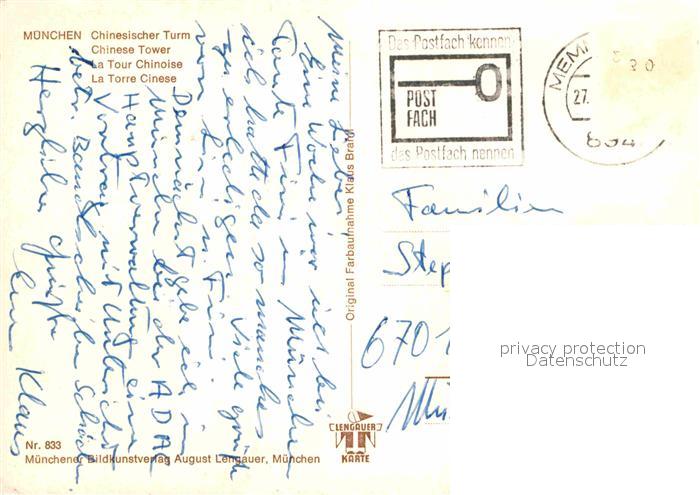 MÜNCHEN Chinesischer Turm
Chinese Tower
La Tour Chinoise
La Torre Cinese
Meine Lieben!
Eine Woche war ich bei
Tante Fini in München
ich hatte da so manches
zu erledigen. Viele Grüße
von Lin u. Fini.
Demnächst gebe ich in
München bei der ADAC
Hauptverwaltung eine
Vortrag mit Unterricht
betr. Bandscheiben Schäden.
Herzliche Grüße
Euer Klaus
Nr. 833
Münchener Bildkunstverlag August Lengauer, München
Original Farbaufnahme Klaus Brantl
LENGAUER
KARTE
Das Postfach kennen
POST
FACH
das Postfach nennen
MEM
27.
20
894
Familien
Step
6701
privacy protection
Datenschutz